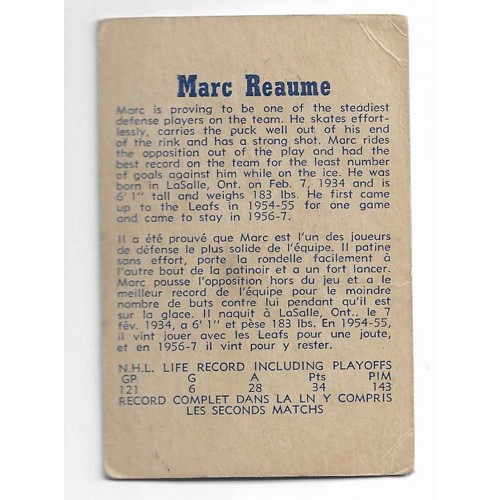 Marc Reaume
Marc is proving to be one of the steadiest
defense players on the team. He skates effort-
lessly, carries the puck well out of his end
of the rink and has a strong shot. Marc rides
the opposition out of the play and had the
best record on the team for the least number
of goals against him while on the ice. He was
born in LaSalle, Ont. on Feb. 7, 1934 and is
6' 1" tall and weighs 183 lbs. He first came
up to the Leafs in 1954-55 for one game
and came to stay in 1956-7.
Il a été prouvé que Marc est l'un des joueurs
de défense le plus solide de l'équipe. Il patine
sans effort, porte la rondelle facilement à
l'autre bout de la patinoir et a un fort lancer.
Marc pousse l'opposition hors du jeu et a le
meilleur record de l'équipe pour le moindre
nombre de buts contre lui pendant qu'il est
sur la glace. Il naquit à LaSalle, Ont., le 7
fév. 1934, a 6' 1" et pèse 183 lbs. En 1954-55,
il vint jouer avec les Leafs pour une joute,
et en 1956-7 il vint pour y rester.
N.H.L. LIFE RECORD INCLUDING PLAYOFFS
GP G A Pts PIM
121 6 28 34 143
RECORD COMPLET DANS LA LN Y COMPRIS
LES SECONDS MATCHS